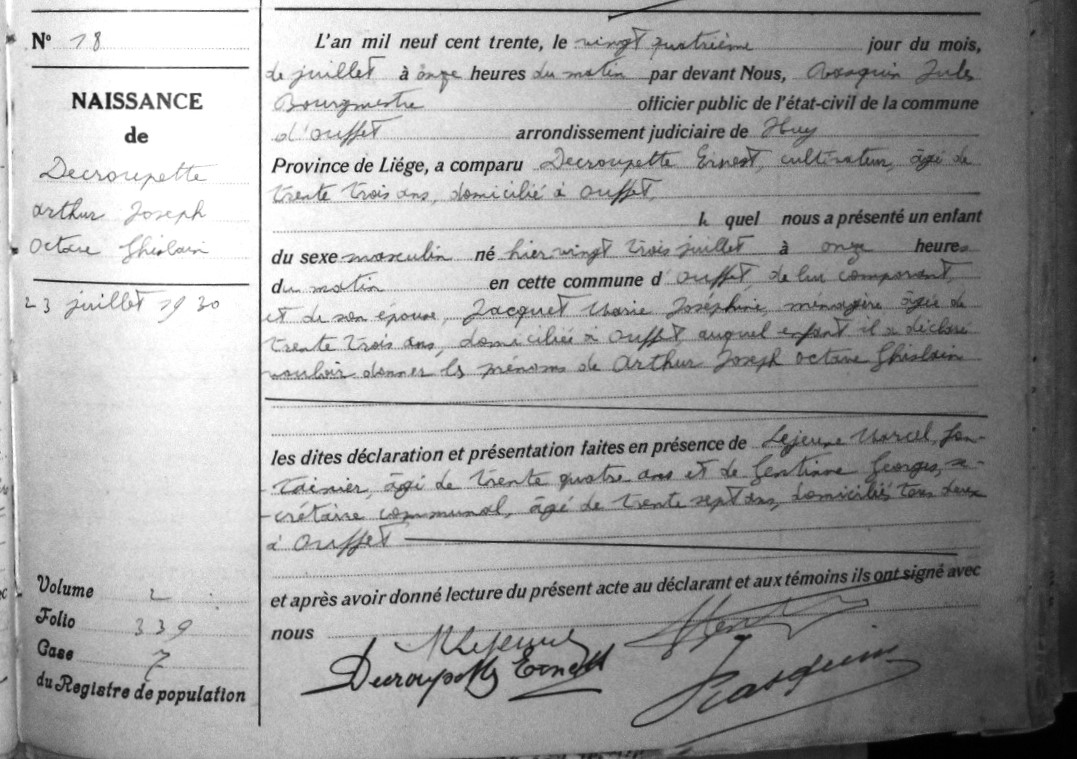 N° 18
NAISSANCE
de
Decroupette
Arthur Joseph
Octave Ghislain
23 juillet 1930
Volume 2
Folio 339
Case 7
du Registre de population
L'an mil neuf cent trente, le vingt quatrième jour du mois,
de juillet à onze heures du matin par devant Nous, Jules
Bourgmestre officier public de l'état-civil de la commune
d'Ouffet arrondissement judiciaire de Huy
Province de Liége, a comparu Decroupette Ernest, cultivateur, âgé de
trente trois ans, domicilié à Ouffet,
le quel nous a présenté un enfant
du sexe masculin né hier vingt trois juillet à onze heures
du matin en cette commune d'Ouffet, de lui comparant,
et de son épouse, Jacquet Marie Joséphine, ménagère âgée de
trente trois ans, domiciliée à Ouffet auquel enfant il a déclaré
vouloir donner les prénoms de Arthur Joseph Octave Ghislain
les dites déclaration et présentation faites en présence de Lejeune Marcel, fon-
-tainier, âgé de trente quatre ans et de Gentinne Georges, se-
-crétaire communal, âgé de trente sept ans, domiciliés tous deux
à Ouffet
et après avoir donné lecture du présent acte au déclarant et aux témoins ils ont signé avec
nous
M Lejeune
Decroupette Ernest